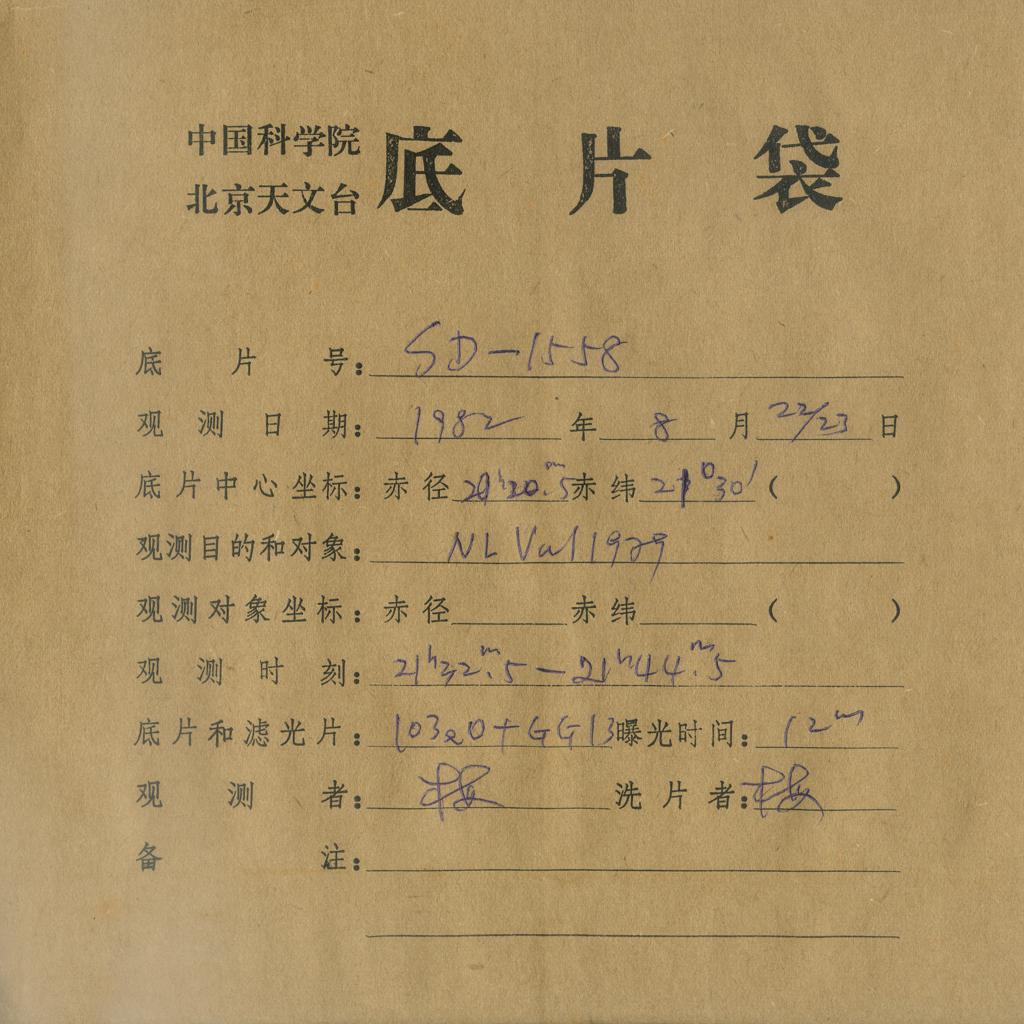 中国科学院
北京天文台
底片袋
底片号：SD-1558
观测日期：1982年8月22/23日
底片中心坐标：赤径21ʰ20ᵐ.5赤纬21°30′（ ）
观测目的和对象：NL Vul 1979
观测对象坐标：赤径 赤纬 （ ）
观测时刻：21ʰ32ᵐ.5—21ʰ44ᵐ.5
底片和滤光片：103aO+GG13曝光时间：12ᵐ
观测者：梅 洗片者：梅
备注：